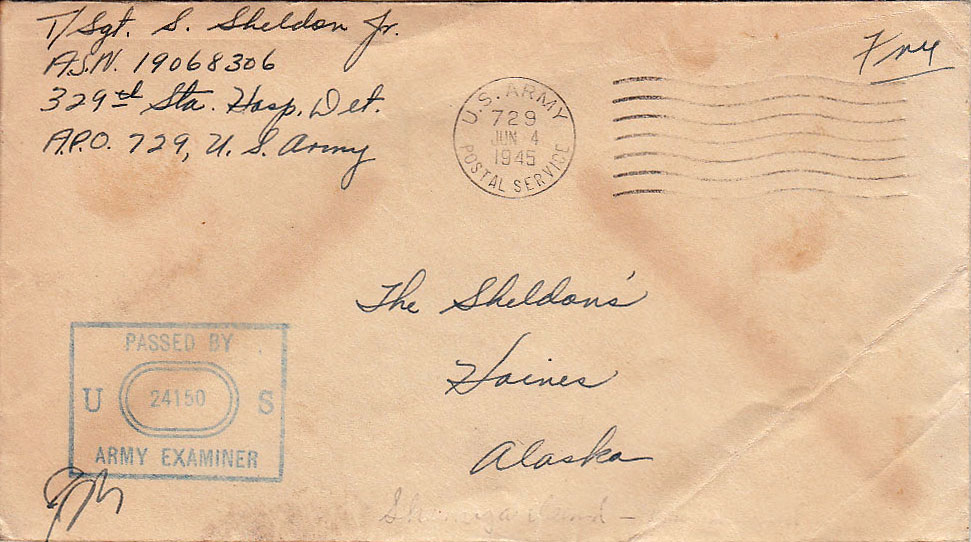 T/Sgt. S. Sheldon Jr.
A.S.N. 19068306
329th Sta. Hosp. Det.
A.P.O. 729, U. S. Army
Free
U.S. ARMY
729
JUN 4
1945
POSTAL SERVICE
The Sheldons'
Haines
Alaska
PASSED BY
U 24150 S
ARMY EXAMINER
Shemya Island -